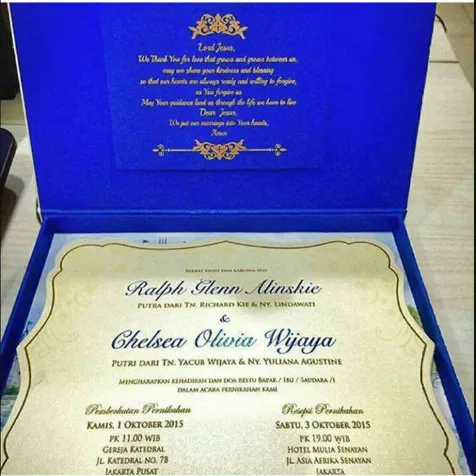 Lord Jesus,
We Thank You for love that grows and grows between us,
may we share your kindness and blessing
so that our hearts are always ready and willing to forgive,
as You forgive us
May Your guidance lead us through the life we have to live
Dear Jesus,
We put our marriage into Your hearts,
Amen
BERKAT KASIH DAN KARUNIA-NYA
Ralph Glenn Alinskie
PUTRA DARI TN. RICHARD KIE & NY. LINDAWATI
&
Chelsea Olivia Wijaya
PUTRI DARI TN. YACUB WIJAYA & NY. YULIANA AGUSTINE
MENGHARAPKAN KEHADIRAN DAN DOA RESTU BAPAK / IBU / SAUDARA /I
DALAM ACARA PERNIKAHAN KAMI
Pemberkatan Pernikahan
KAMIS, 1 OKTOBER 2015
PK 11.00 WIB
GEREJA KATEDRAL
JL. KATEDRAL NO. 7B
JAKARTA PUSAT
Resepsi Pernikahan
SABTU, 3 OKTOBER 2015
PK 19.00 WIB
HOTEL MULIA SENAYAN
JL. ASIA AFRIKA SENAYAN
JAKARTA